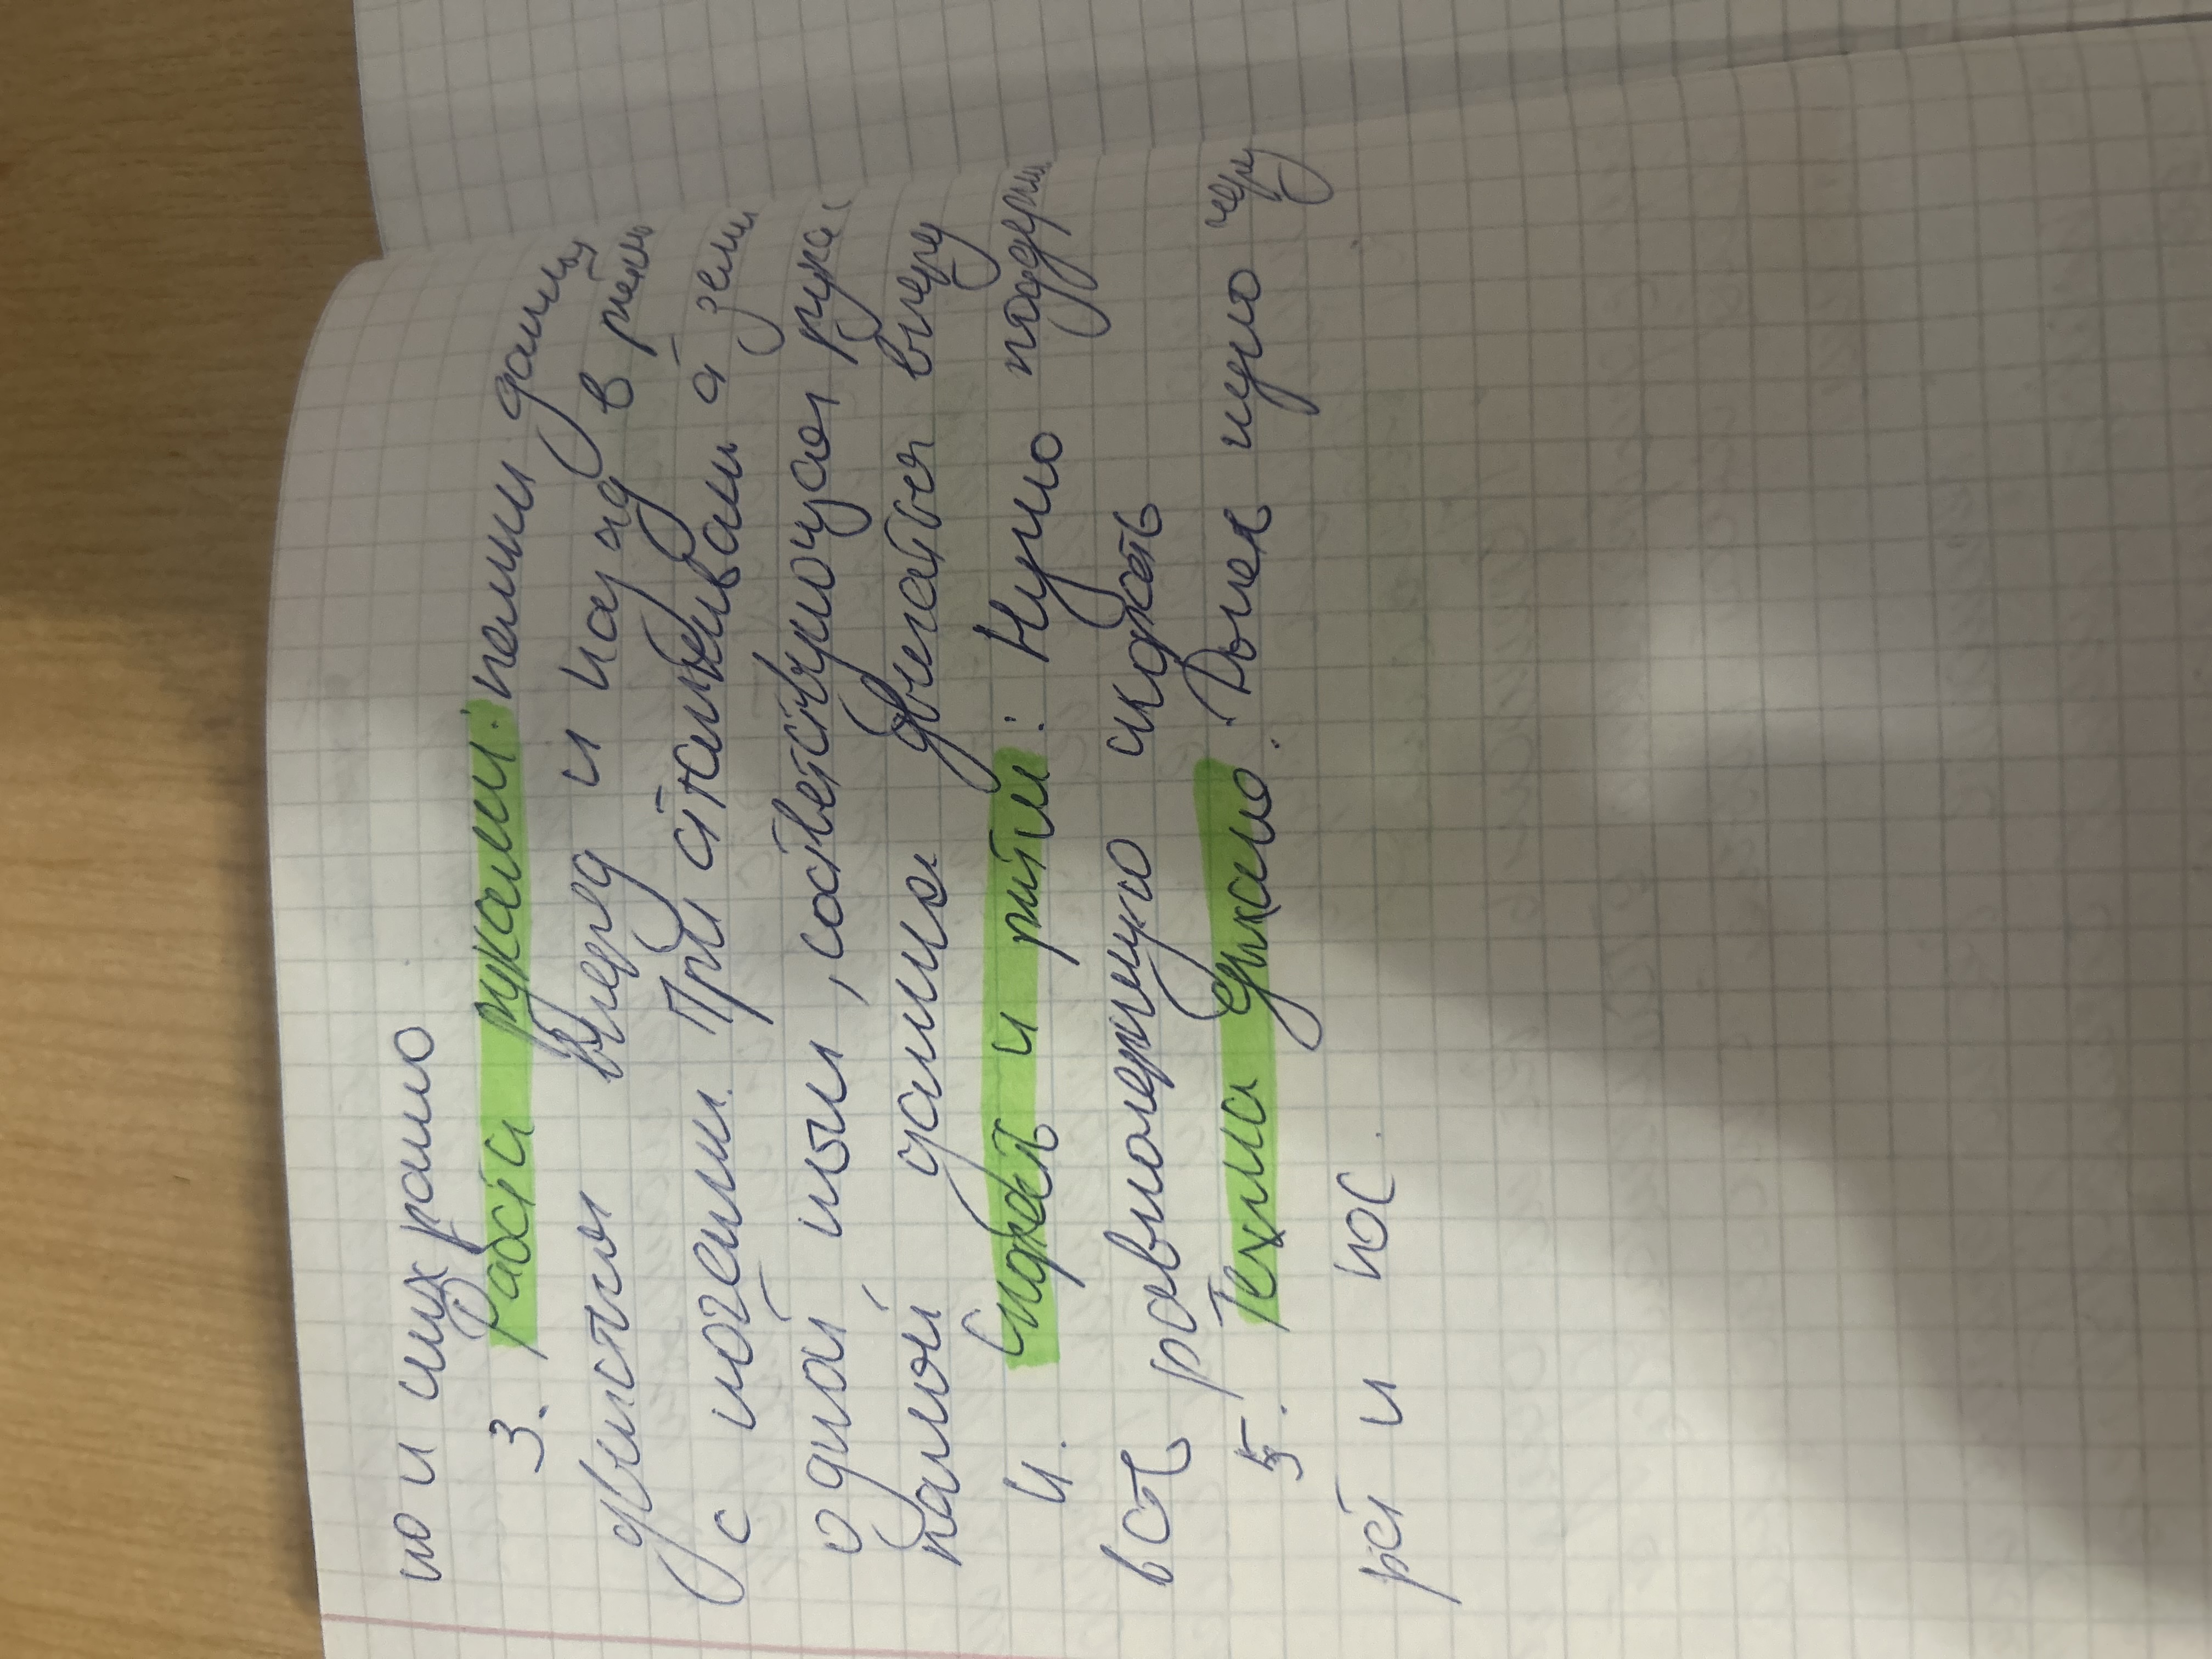 но и их рано
3. Рабсти руками: палки должн
двигатся вперед и назад в ритм
с ногами. При сталкивали а земли
одной ины, соответствующая рука
палой усина двигатья впере
4. Скорость и ритм: Нужно поддержи
вать равномерную скорость
5. Техина дыхано: Дыхек нужно чере
рот и нос.